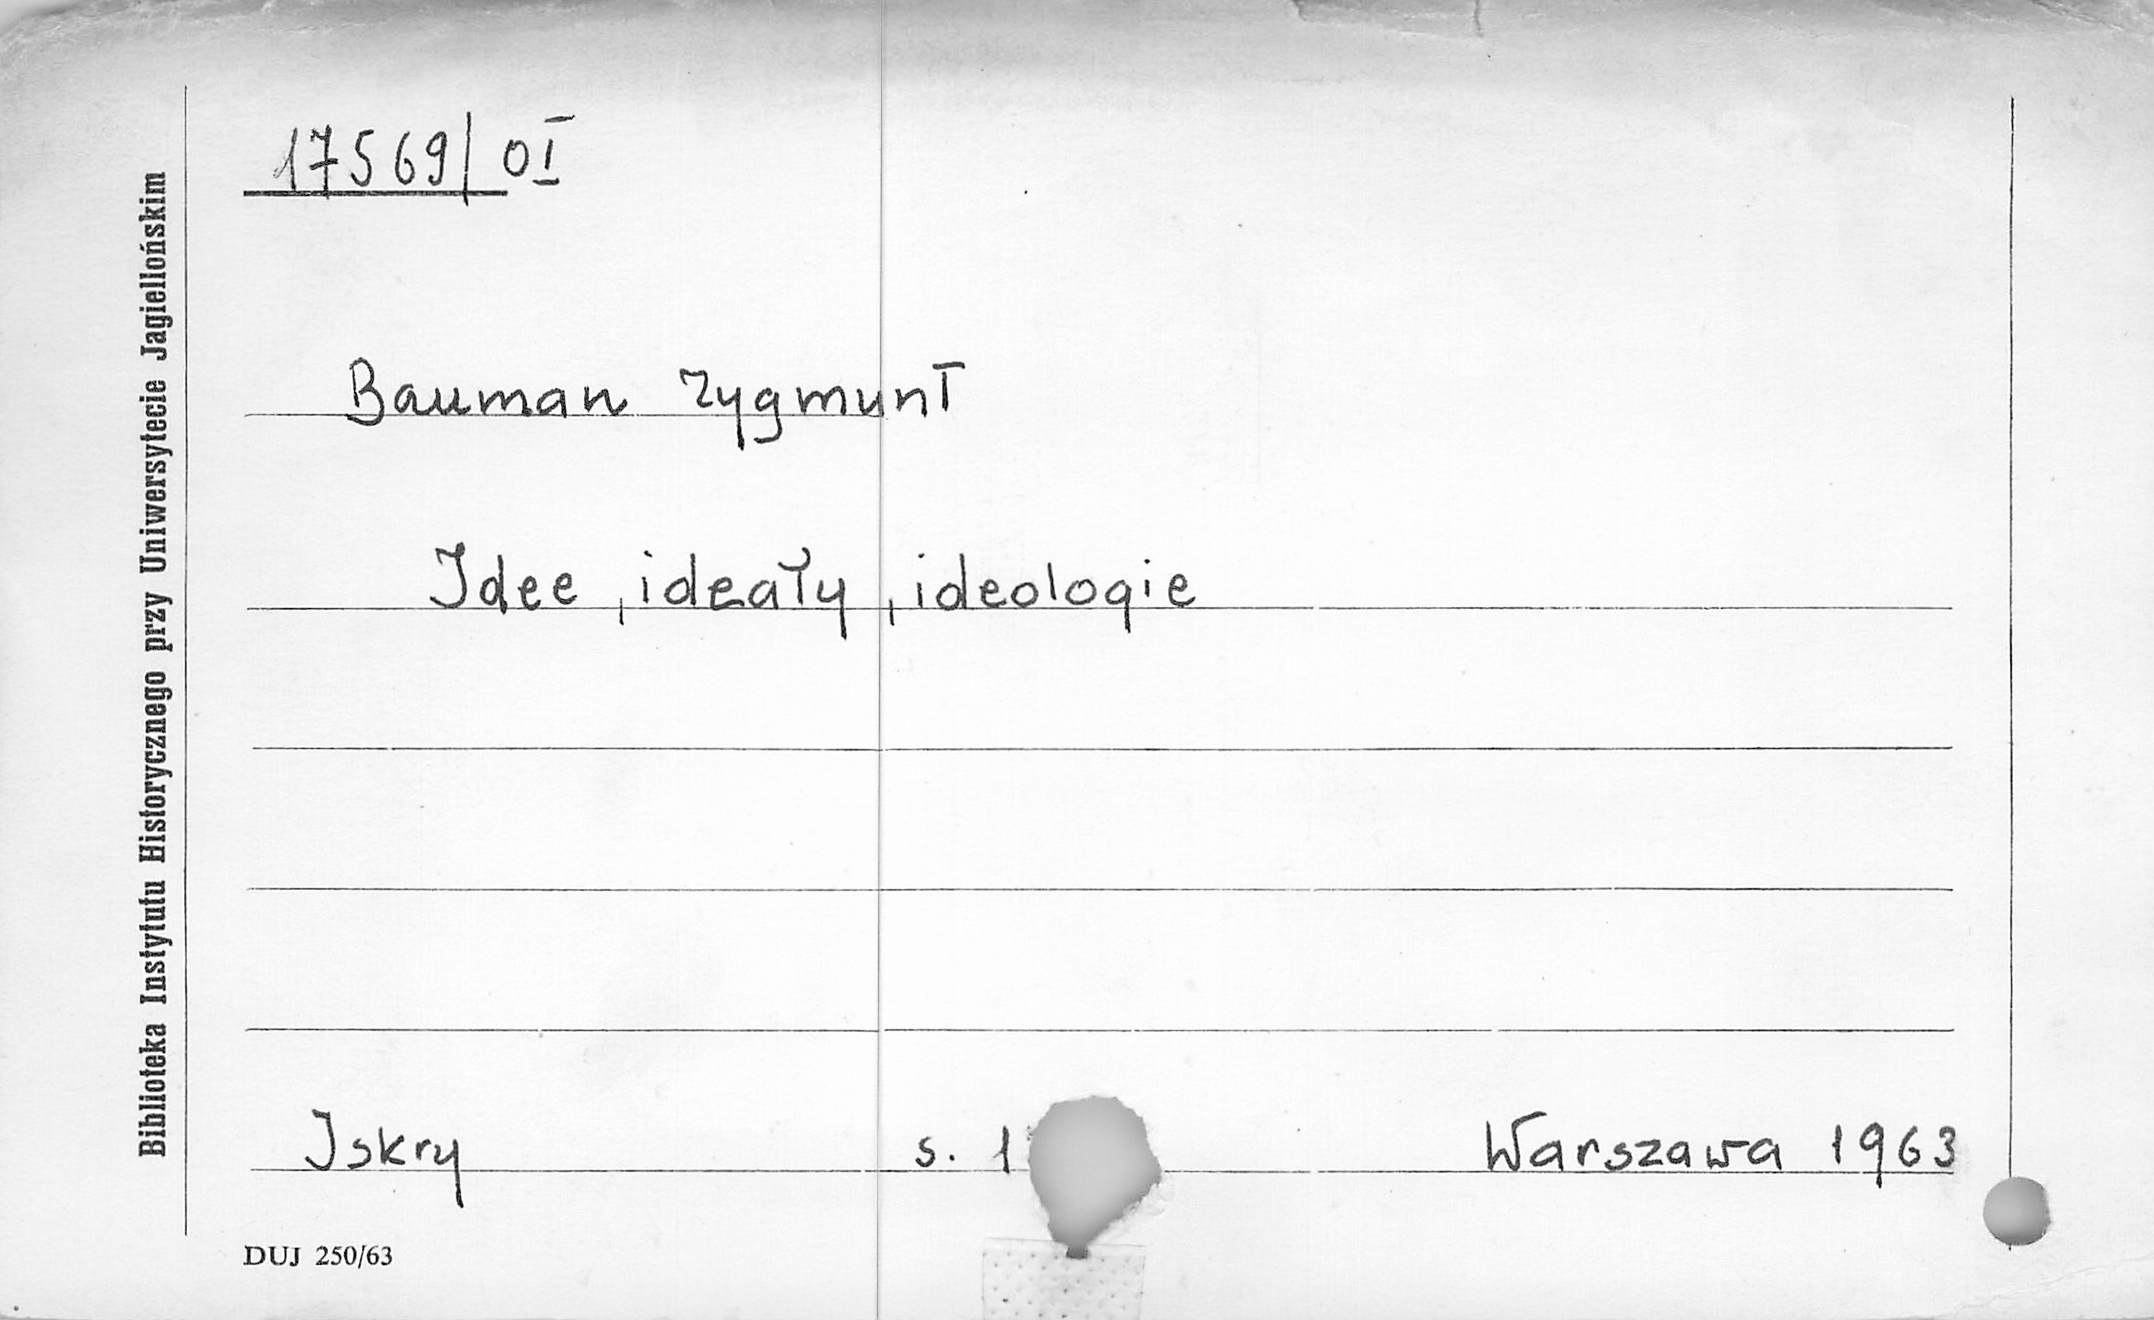 17569/OI
Biblioteka Instytutu Historycznego przy Uniwersytecie Jagiellońskim
Bauman Zygmunt
Idee, ideały, ideologie
Iskry s. 1 Warszawa 1963
DUJ 250/63